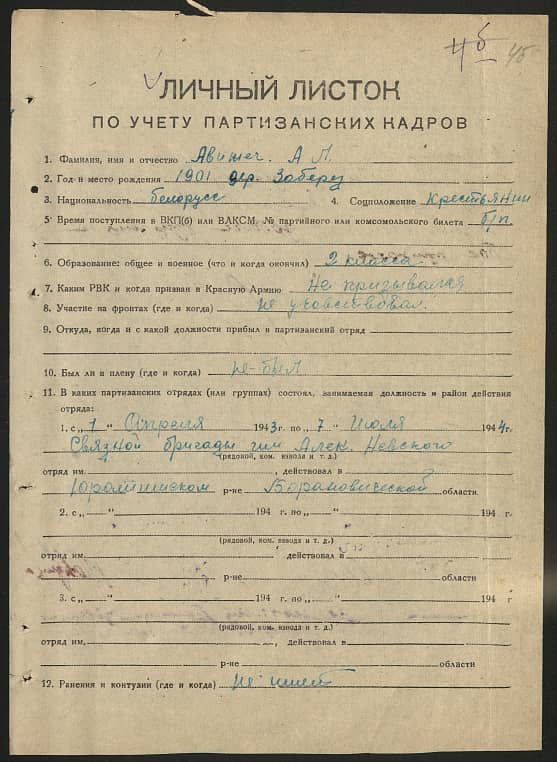 4б 45
ЛИЧНЫЙ ЛИСТОК
ПО УЧЕТУ ПАРТИЗАНСКИХ КАДРОВ
1. Фамилия, имя и отчество
2. Год и место рождения 1901 дер. Заберез
3. Национальность белорусс 4. Соцположение Крестьянин
5 Время поступления в ВКП(б) или ВЛКСМ, № партийного или комсомольского билета б/п.
6. Образование: общее и военное (что и когда окончил) 2 класса
7. Каким РВК и когда призван в Красную Армию Не призывался
8. Участие на фронтах (где и когда) не участвовал.
9. Откуда, когда и с какой должности прибыл в партизанский отряд
10. Был ли в плену (где и когда) не-был
11. В каких партизанских отрядах (или группах) состоял, занимаемая должность и район действия
отряда:
1. с „1“ Апреля 1943г. по „7“ Июля 1944г.
Связной бригады им Алек. Невского
(рядовой, ком. взвода и т. д.)
отряд им. , действовал в
Юратишском р-не Барановической области.
2. с „ “ 194 г. по „ “ 194 г.
(рядовой, ком. взвода и т. д.)
отряд им. , действовал в
р-не области
3. с „ “ 194 г. по „ “ 194 г
(рядовой, ком. взвода и т. д.)
отряд им. , действовал в
р-не области
12. Ранения и контузии (где и когда) не имеет